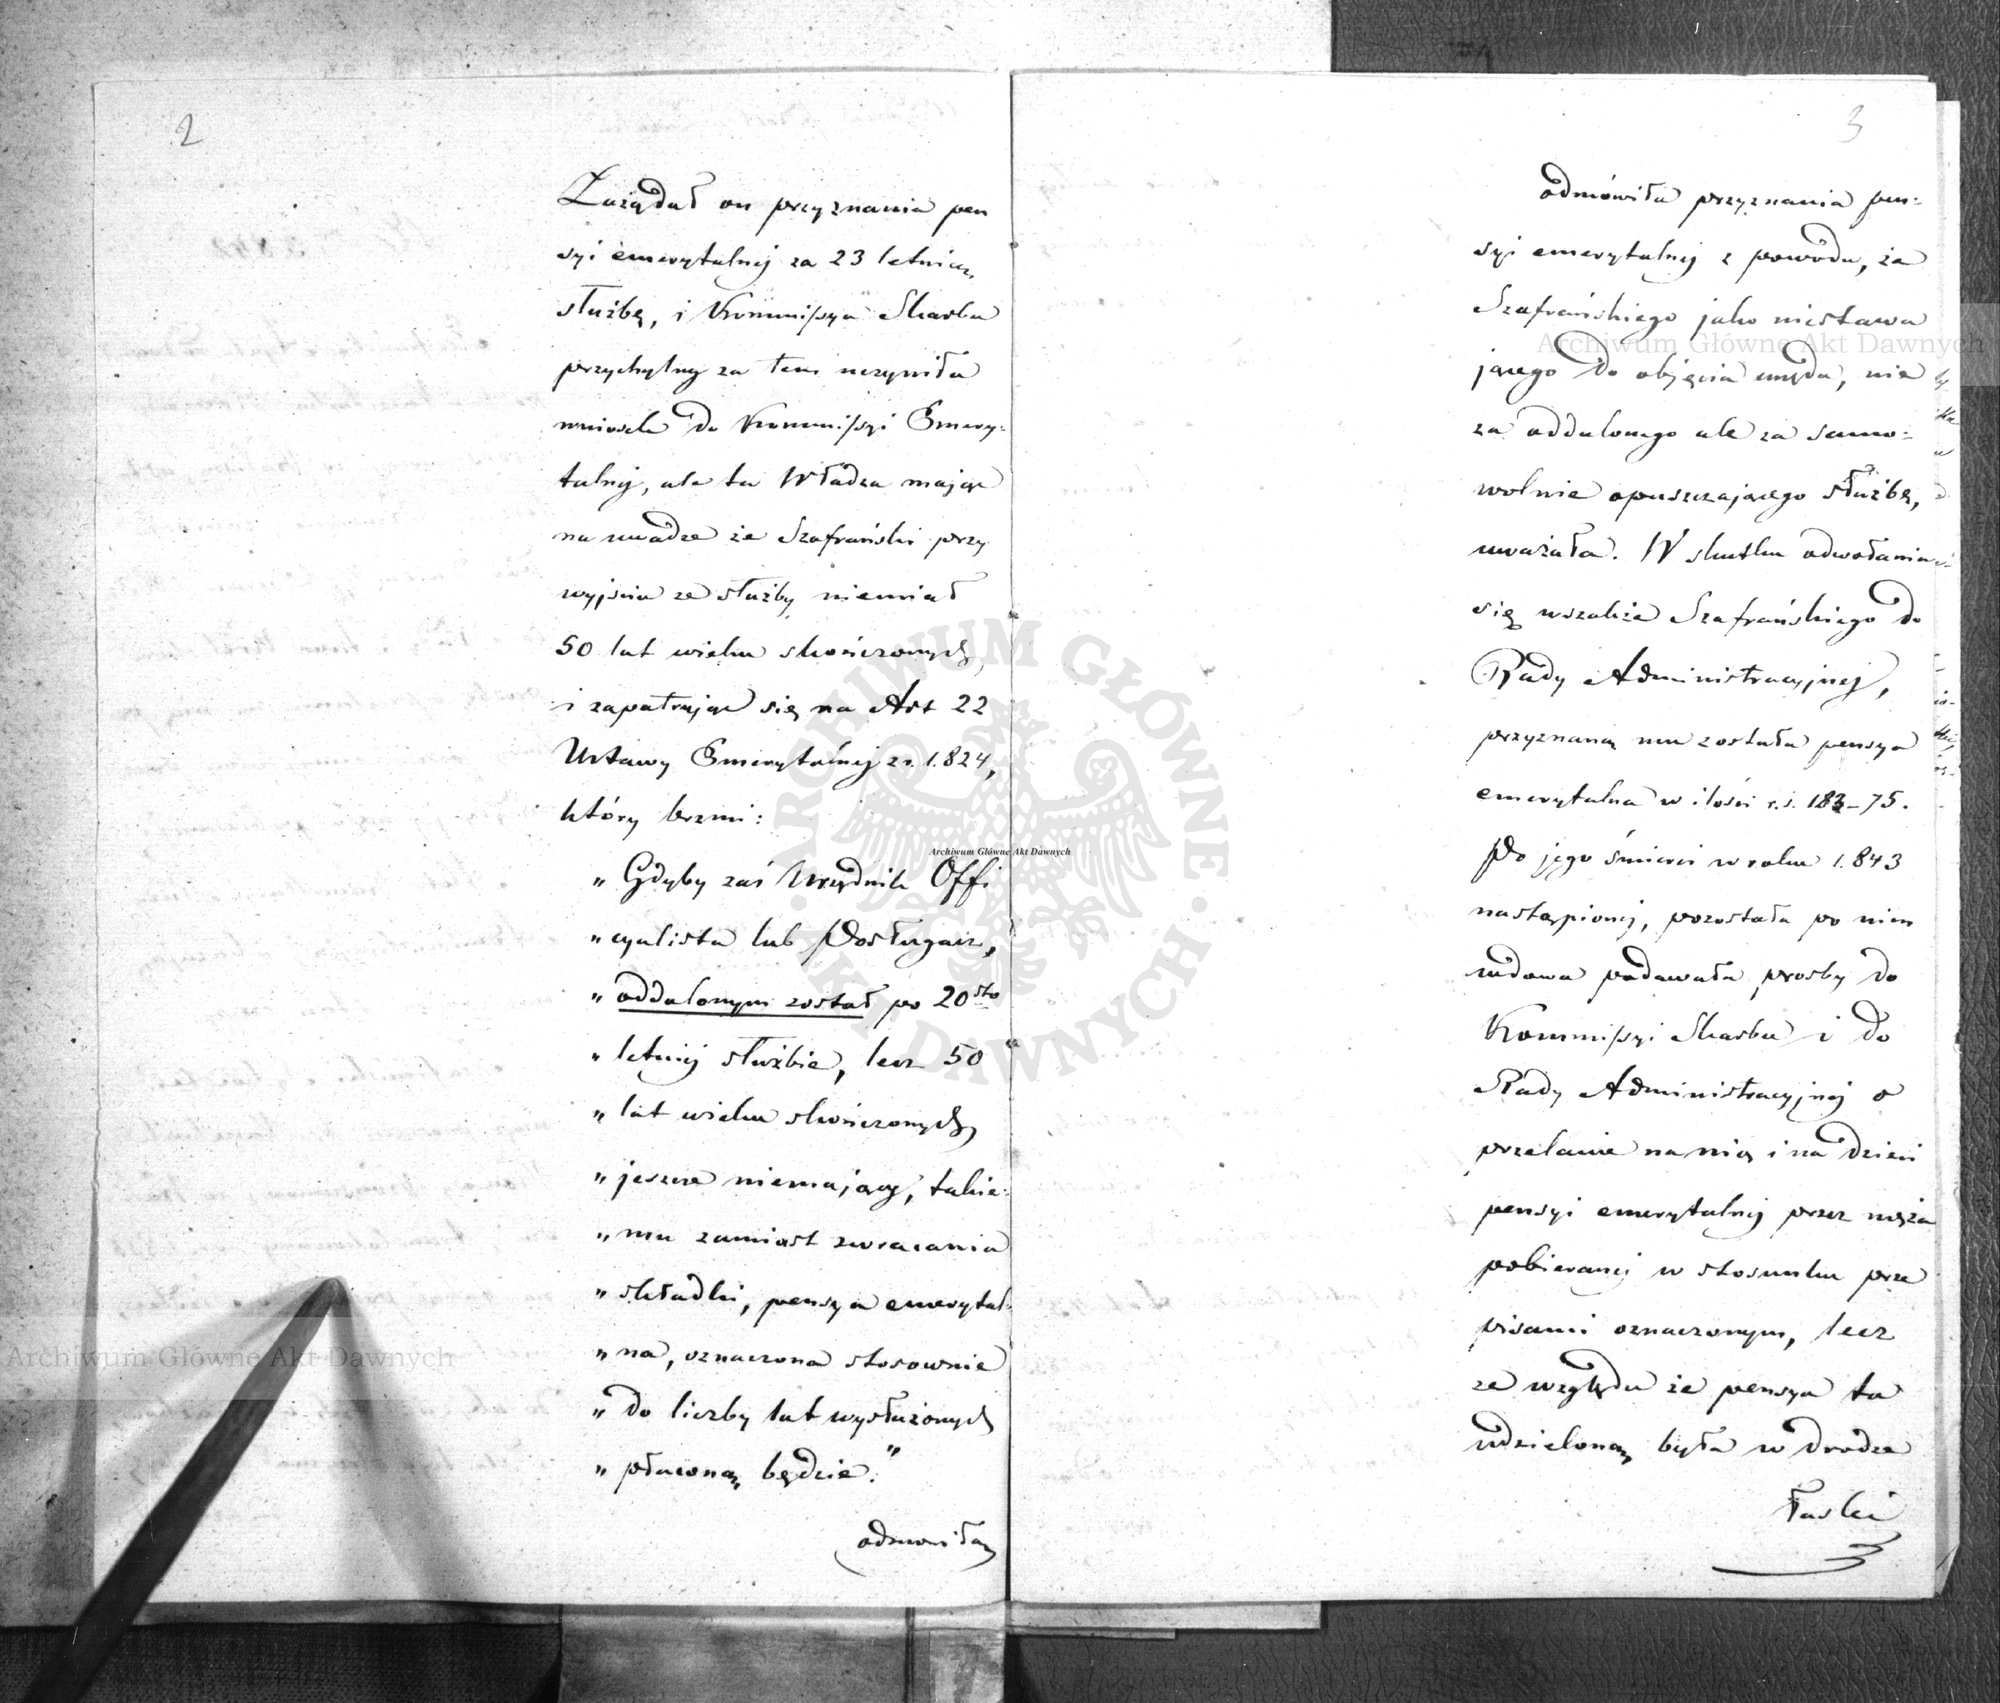 2
Zażądał on przyznania pen
syi emerytalnej za 23 letnią
służbę, i Kommissya Skarbu
przychylny za tem uczyniła
wniosek do Kommissyi Emery-
talnej, ale ta Władza mając
na uwadze że Szafrański przy
wyjściu ze służby niemiał
50 lat wieku skończonych,
i zapatrując się na Art 22
Ustawy Emerytalnej z r. 1.824,
który brzmi:
„ Gdyby zaś Urzędnik Offi
„ cyalista lub Posługacz,
„ oddalonym został po 20sto
„ letniej służbie, lecz 50
„ lat wieku skończonych
„ jeszcze niemający, takie-
„ mu zamiast zwracania
„ składki, pensya emerytal-
„ na, oznaczona stosownie
„ do liczby lat wysłużonych
„ płaconą będzie."
odmówiła
3
odmówiła przyznania pen-
syi emerytalnej z powodu, że
Szafrańskiego jako niestawa
jącego do objęcia urzędu, nie
za oddalonego ale za samo-
wolnie opuszczającego służbę,
uważała. W skutku odwołania
się wszakże Szafrańskiego do
Rady Administracyjnej,
przyznaną mu została pensya
emerytalna w ilości r.s. 183-75.
Po jego śmierci w roku 1.843
nastąpionej, pozostała po nim
wdowa podawała prosby do
Kommissyi Skarbu i do
Rady Administracyjnej o
przelanie na nią i na dzieci
pensyi emerytalnej przez męża
pobieranej w stosunku prze
pisami oznaczonym, lecz
ze względu że pensya ta
udzieloną była w drodze
łaski
Archiwum Główne Akt Dawnych
Archiwum Główne Akt Dawnych
Archiwum Główne Akt Dawnych
ARCHIWUM GŁÓWNE AKT DAWNYCH